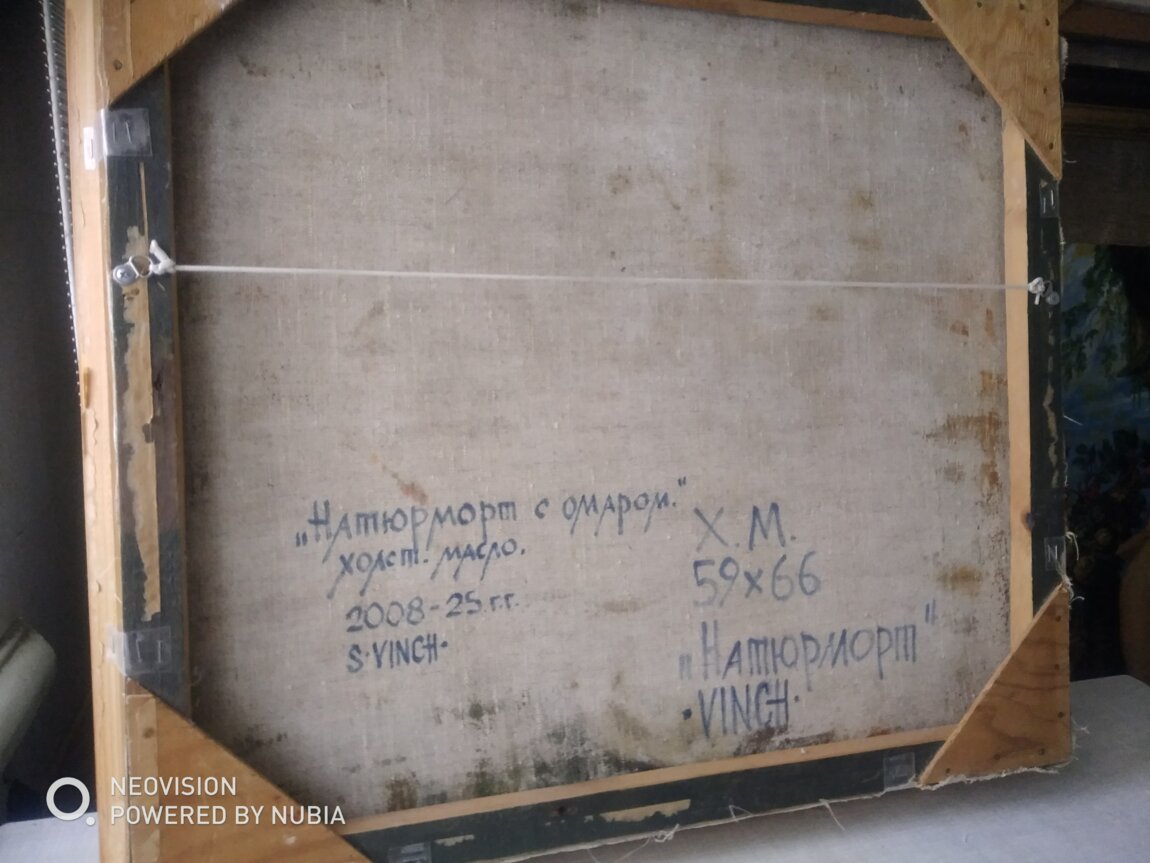 „Натюрморт с омаром."
холст. масло.
2008-25 г.г.
S·VINCH·
Х.М.
59x66
„Натюрморт"
·VINCH·
NEOVISION
POWERED BY NUBIA